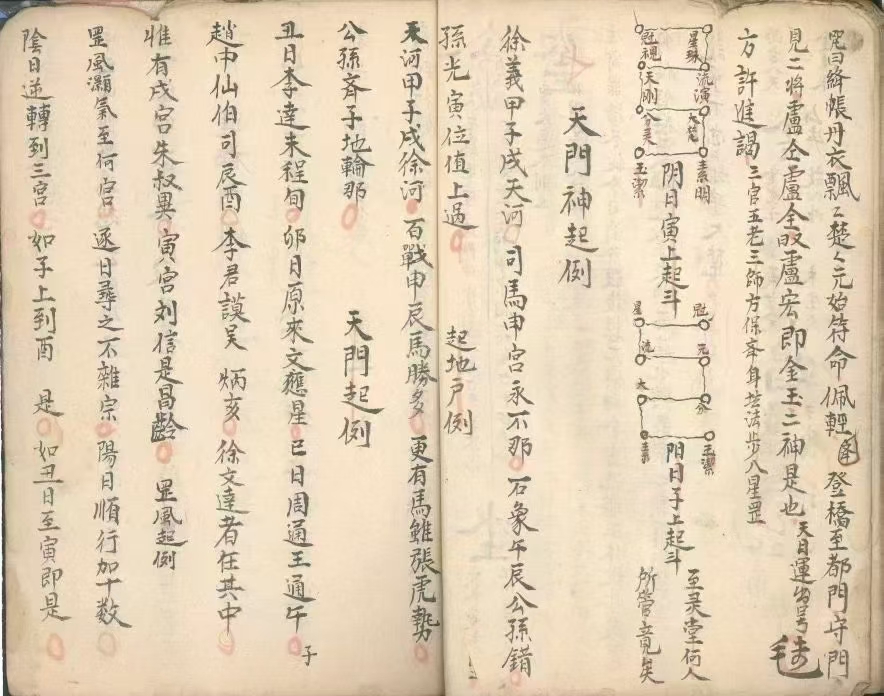 咒曰絳帳丹衣飄々楚々元始符命佩輕 登橋至都門守門
見二将盧仝盧全 盧宏即金玉二神是也
天日運
方許進謁 三官五老三師方保奔身 法步八星罡
星珠 冠視
流演 天刚
大梵 分灵
素明 玉潔
阴日寅上起斗
星 冠
流 元
太 分
素 玉潔
阳日子上起斗
至灵堂何人
所管竟矣
天門神起例
徐義甲子戌天河 司馬申宮永不那 石象午辰公孫錯
孫光寅位值上過 起地户例
天河甲子戌徐河 百戰申辰馬勝多 更有馬雖張虎勢
公孫斉子地輪那 天門起例
丑日李達未程旬 卯日原來文應星 巳日周通王通午
子
趙中仙伯司辰酉 李君謨吴炳亥 徐文達者在其中
惟有戌宮朱叔異 寅宮刘信是昌齡 罡風起例
罡風灝氣至何宮 逐日尋之不雜宗 陽日順行加十数
陰日逆轉到三宮 如子上到酉 是 如丑日至寅即是